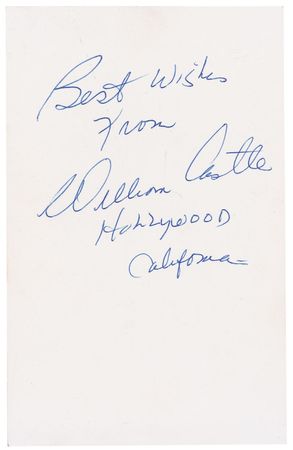 Best Wishes
From
William Castle
Hollywood
California